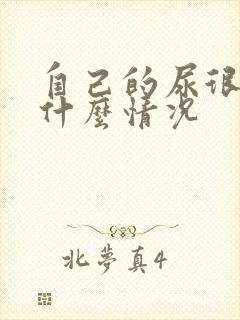 自己的尿很
什麼情況
北夢真4